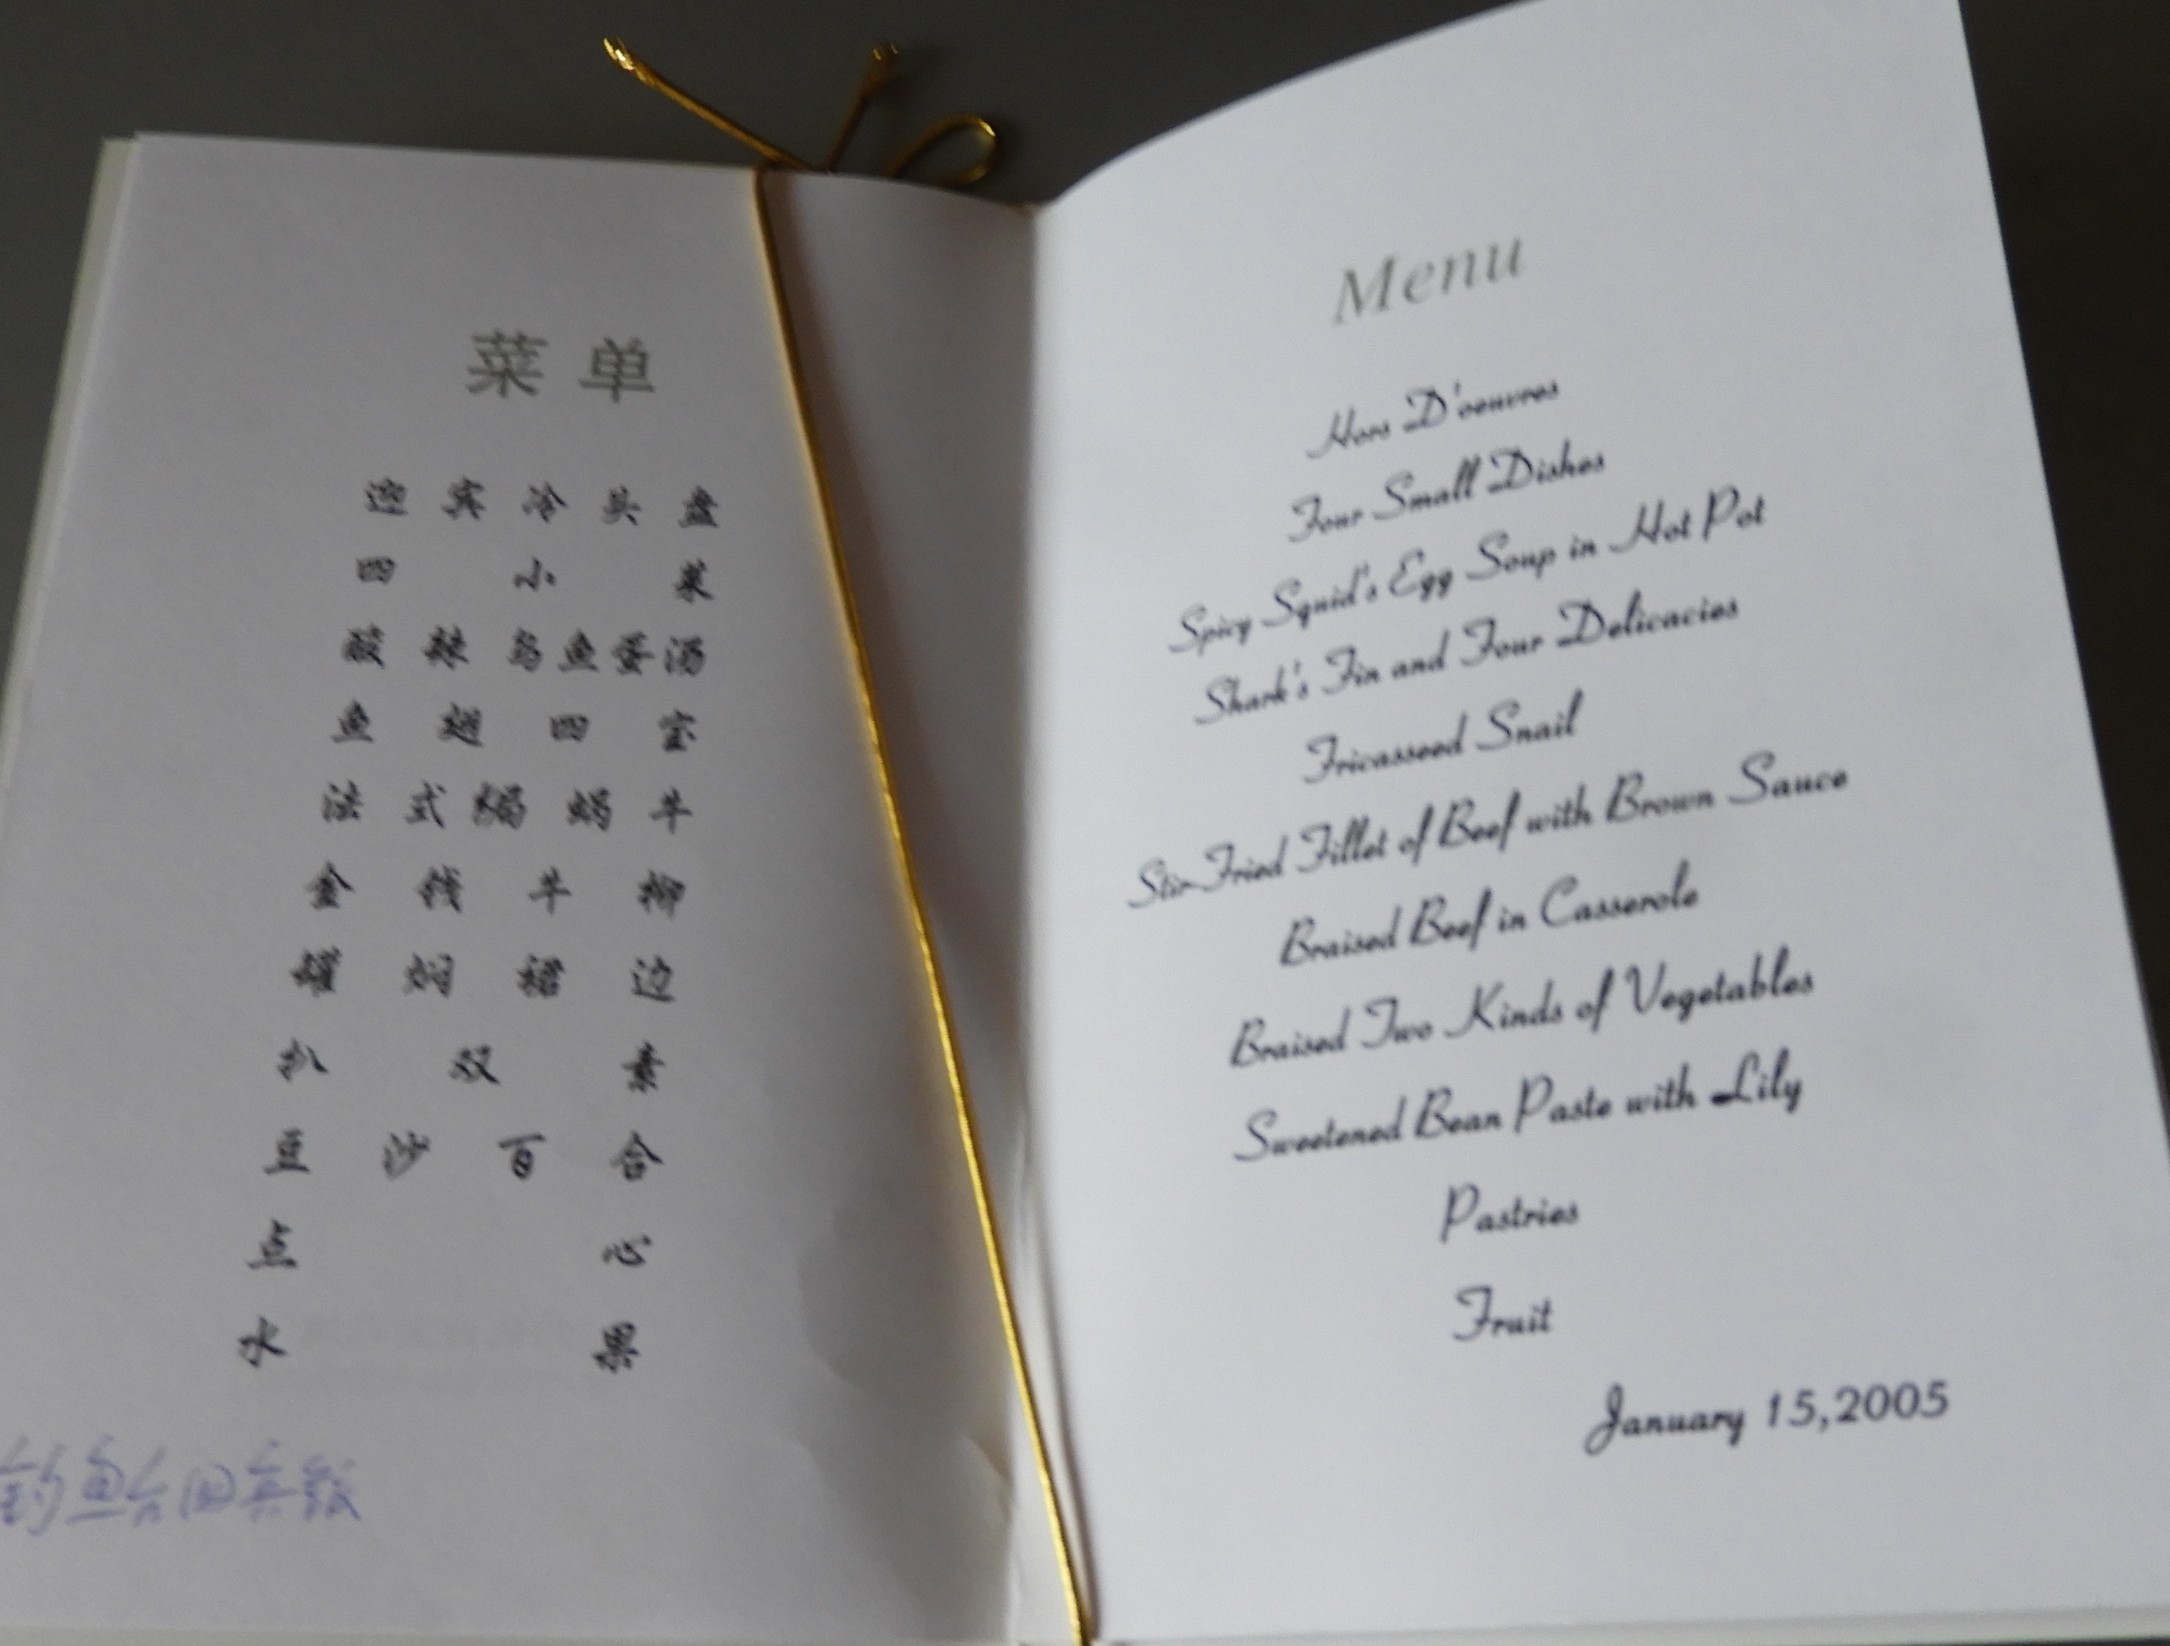 菜单
迎宾冷头盘
四小菜
酸辣乌鱼蛋汤
鱼翅四宝
法式焗蜗牛
金钱牛柳
罐焖裙边
扒双素
豆沙百合
点心
水果
钓鱼台国宾馆
Menu
Hors D'oeuvres
Four Small Dishes
Spicy Squid's Egg Soup in Hot Pot
Shark's Fin and Four Delicacies
Fricasseed Snail
Stir-Fried Fillet of Beef with Brown Sauce
Braised Beef in Casserole
Braised Two Kinds of Vegetables
Sweetened Bean Paste with Lily
Pastries
Fruit
January 15,2005